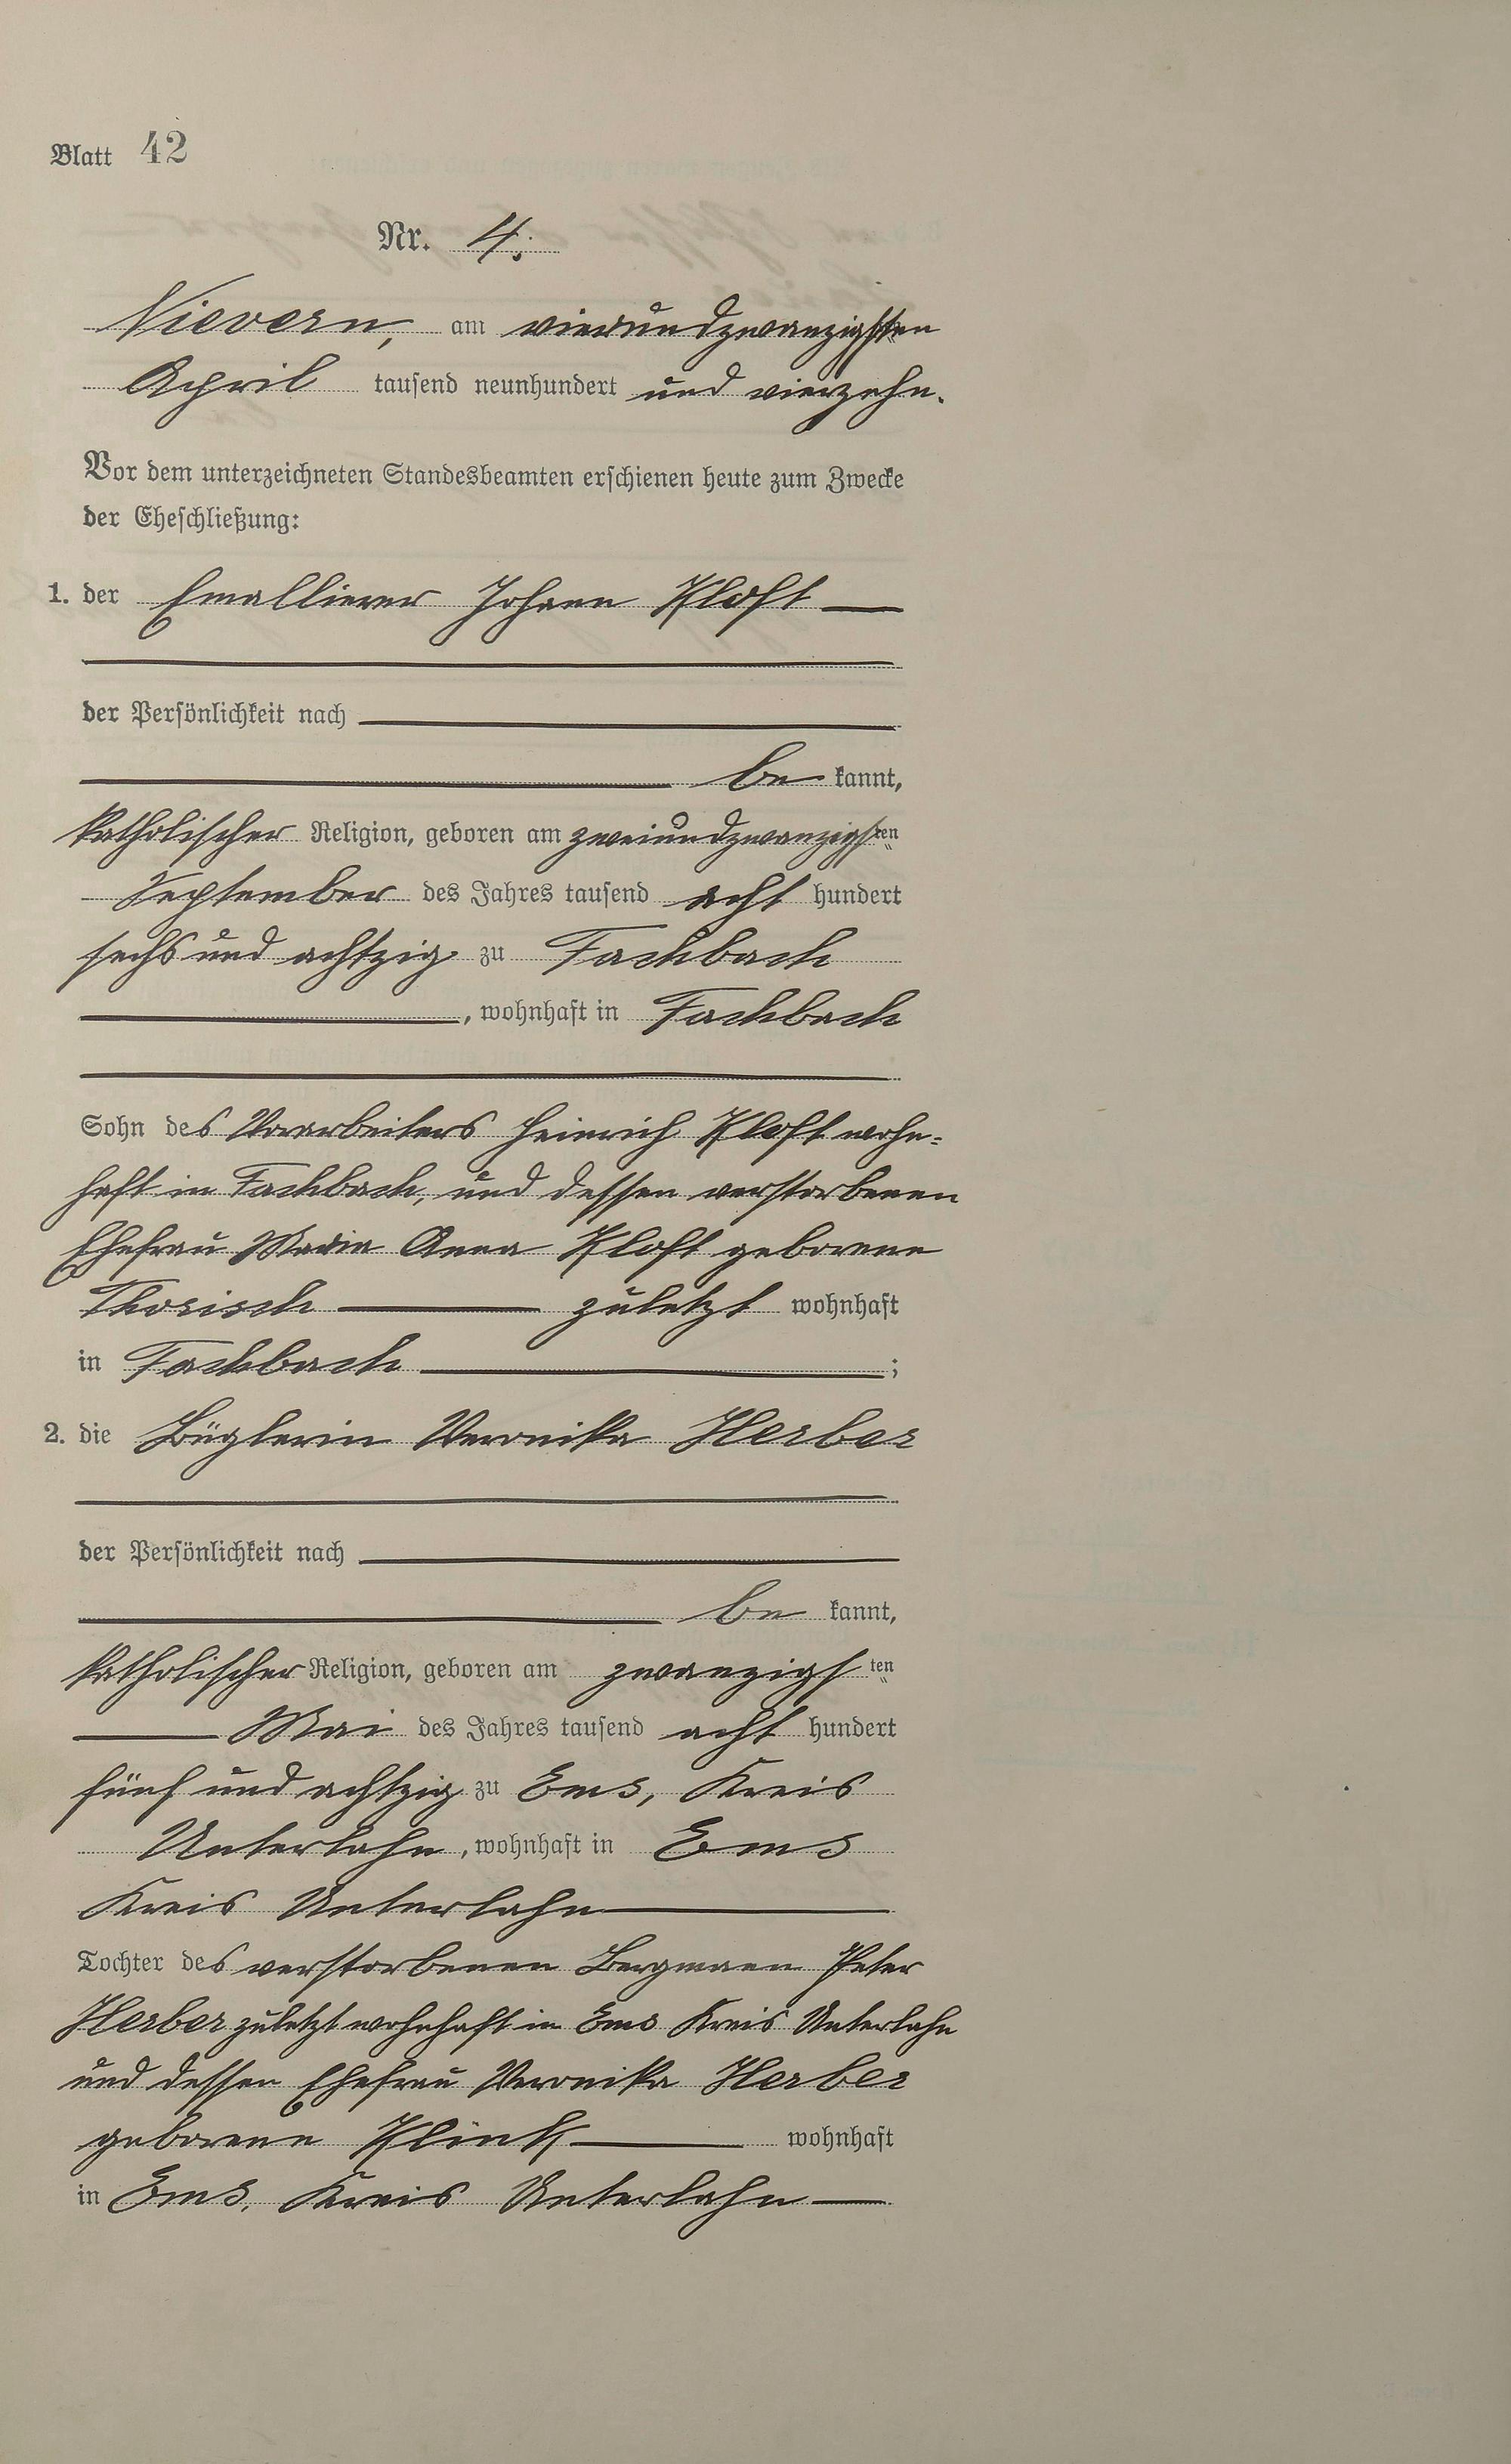 Blatt 42
Nr. 4.
Nievern, am vierundzwanzigsten
April tausend neunhundert und vierzehn.
Vor dem unterzeichneten Standesbeamten erschienen heute zum Zwecke
der Eheschließung:
1. der Emallierer Johann Kloft
der Persönlichkeit nach
be kannt,
katholischer Religion, geboren am zweiundzwanzigsten
September des Jahres tausend acht hundert
sechs und achtzig zu Fachbach
, wohnhaft in Fachbach
Sohn des Vorarbeiters Heinrich Kloft wohn-
haft in Fachbach, und dessen verstorbenen
Ehefrau Maria Anna Kloft geborene
Thorisch zuletzt wohnhaft
in Fachbach ;
2. die Büglerin Veronika Herber
der Persönlichkeit nach
be kannt,
katholischer Religion, geboren am zwanzigsten
Mai des Jahres tausend acht hundert
fünf und achtzig zu Ems, Kreis
Unterlahn, wohnhaft in Ems
Kreis Unterlahn
Tochter des verstorbenen Bergmann Peter
Herber zuletzt wohnhaft in Ems Kreis Unterlahn
und dessen Ehefrau Veronika Herber
geborene Klink wohnhaft
in Ems, Kreis Unterlahn